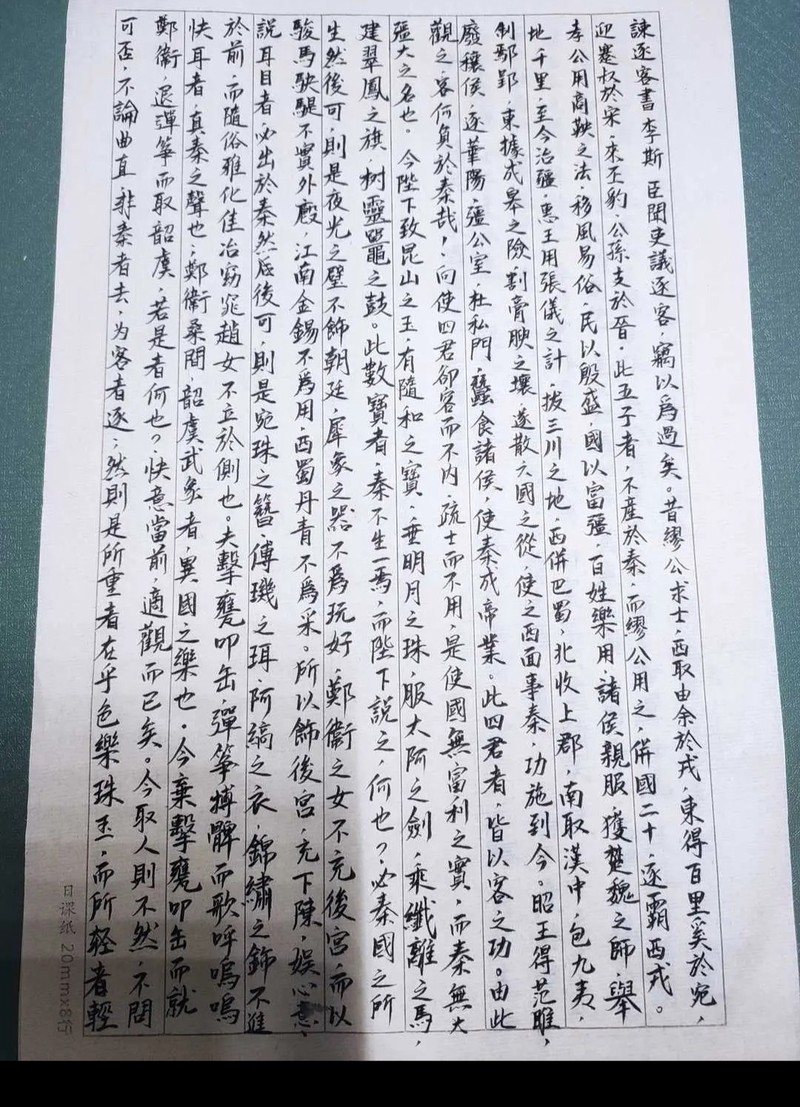 諫逐客書 李斯 臣聞吏議逐客，竊以爲過矣。昔繆公求士，西取由余於戎，東得百里奚於宛，
迎蹇叔於宋，來丕豹、公孫支於晉。此五子者，不產於秦，而繆公用之，併國二十，逐霸西戎。
孝公用商鞅之法，移風易俗，民以殷盛，國以富彊，百姓樂用，諸侯親服，獲楚魏之師，舉
地千里，至今治彊。惠王用張儀之計，拔三川之地，西併巴蜀，北收上郡，南取漢中，包九夷，
制鄢郢，東據成皋之險，割膏腴之壤，遂散六國之從，使之西面事秦，功施到今。昭王得范雎，
廢穰侯，逐華陽，彊公室，杜私門，蠶食諸侯，使秦成帝業。此四君者，皆以客之功。由此
觀之，客何負於秦哉！向使四君卻客而不內，疏士而不用，是使國無富利之實，而秦無大
彊大之名也。今陛下致昆山之玉，有隨和之寶，垂明月之珠，服太阿之劍，乘纖離之馬，
建翠鳳之旗，树靈鼉之鼓。此數寶者，秦不生一焉，而陛下說之，何也？必秦國之所
生然後可，則是夜光之璧不飾朝廷，犀象之器不爲玩好，鄭衞之女不充後宮，而以
駿馬駃騠不實外廄，江南金錫不爲用，西蜀丹青不爲采。所以飾後宮，充下陳，娛心意，
說耳目者，必出於秦然後可，則是宛珠之簪，傅璣之珥，阿縞之衣，錦繡之飾不進
於前，而隨俗雅化佳冶窈窕趙女不立於側也。夫擊甕叩缶，彈箏搏髀而歌呼嗚嗚
快耳者，真秦之聲也；鄭衞桑間，韶虞武象者，異國之樂也。今棄擊甕叩缶而就
鄭衞，退彈箏而取韶虞，若是者何也？快意當前，適觀而已矣。今取人則不然，不問
可否，不論曲直，非秦者去，为客者逐；然則是所重者在乎色樂珠玉，而所輕者輕
日课纸 20mmx8行